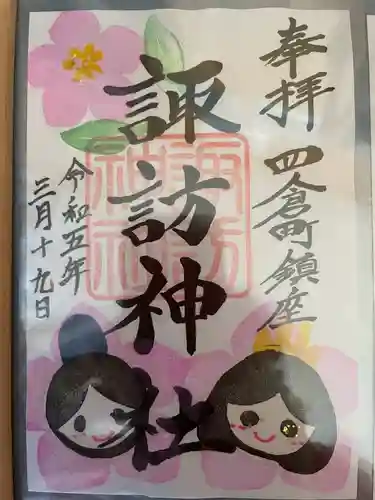 奉拝 四倉町鎮座
諏訪神社
諏訪神社
令和五年
三月十九日